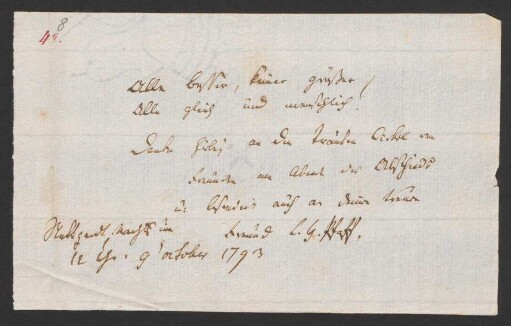 8
48.
Alle besser, keiner größer,
Alle gleich und menschlich!
Denke hiebei an den trauten Cirkel von
Freunden am Abend des Abschieds
u. besonders auch an deinen treuen
Stuttgardt. Nachts um Freund C. H. Pfaff.
12 Uhr. 9 October 1793